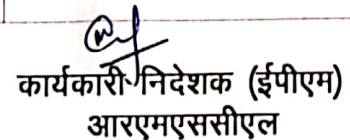 कार्यकारी निदेशक (ईपीएम)
आरएमएससीएल